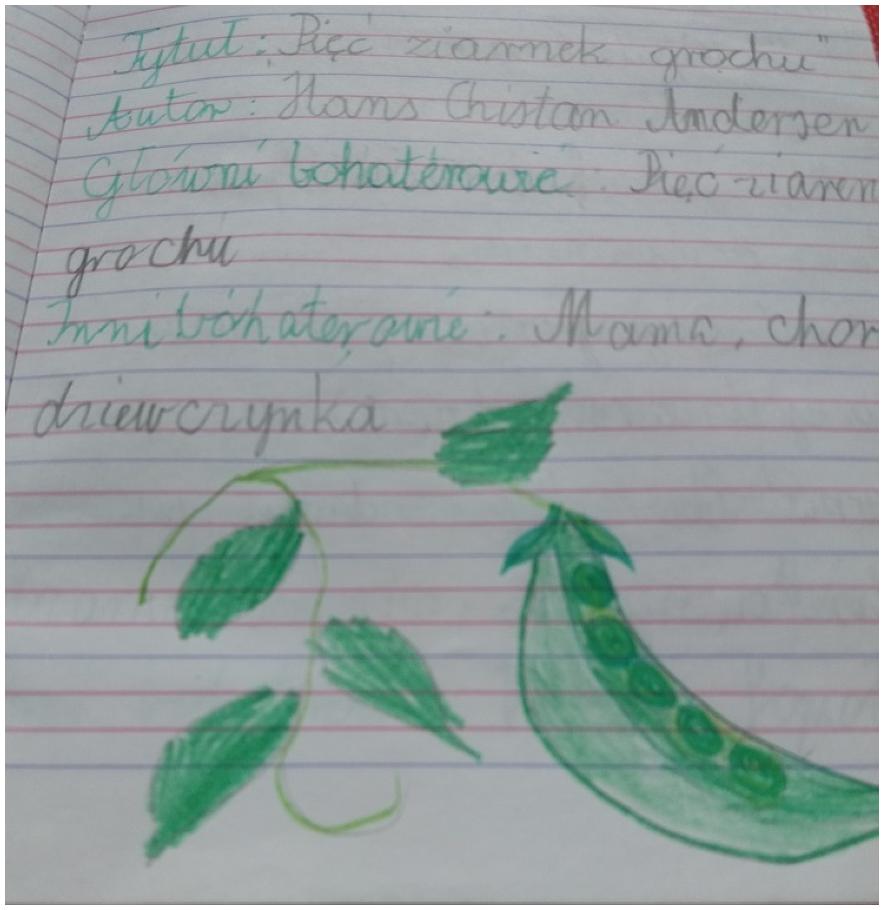 Tytuł: Pięć ziarnek grochu"
Autor: Hans Chistan Andersen
Główni bohaterowie: Pięć ziaren
grochu
Inni bohaterowie: Mama, chor
dziewczynka